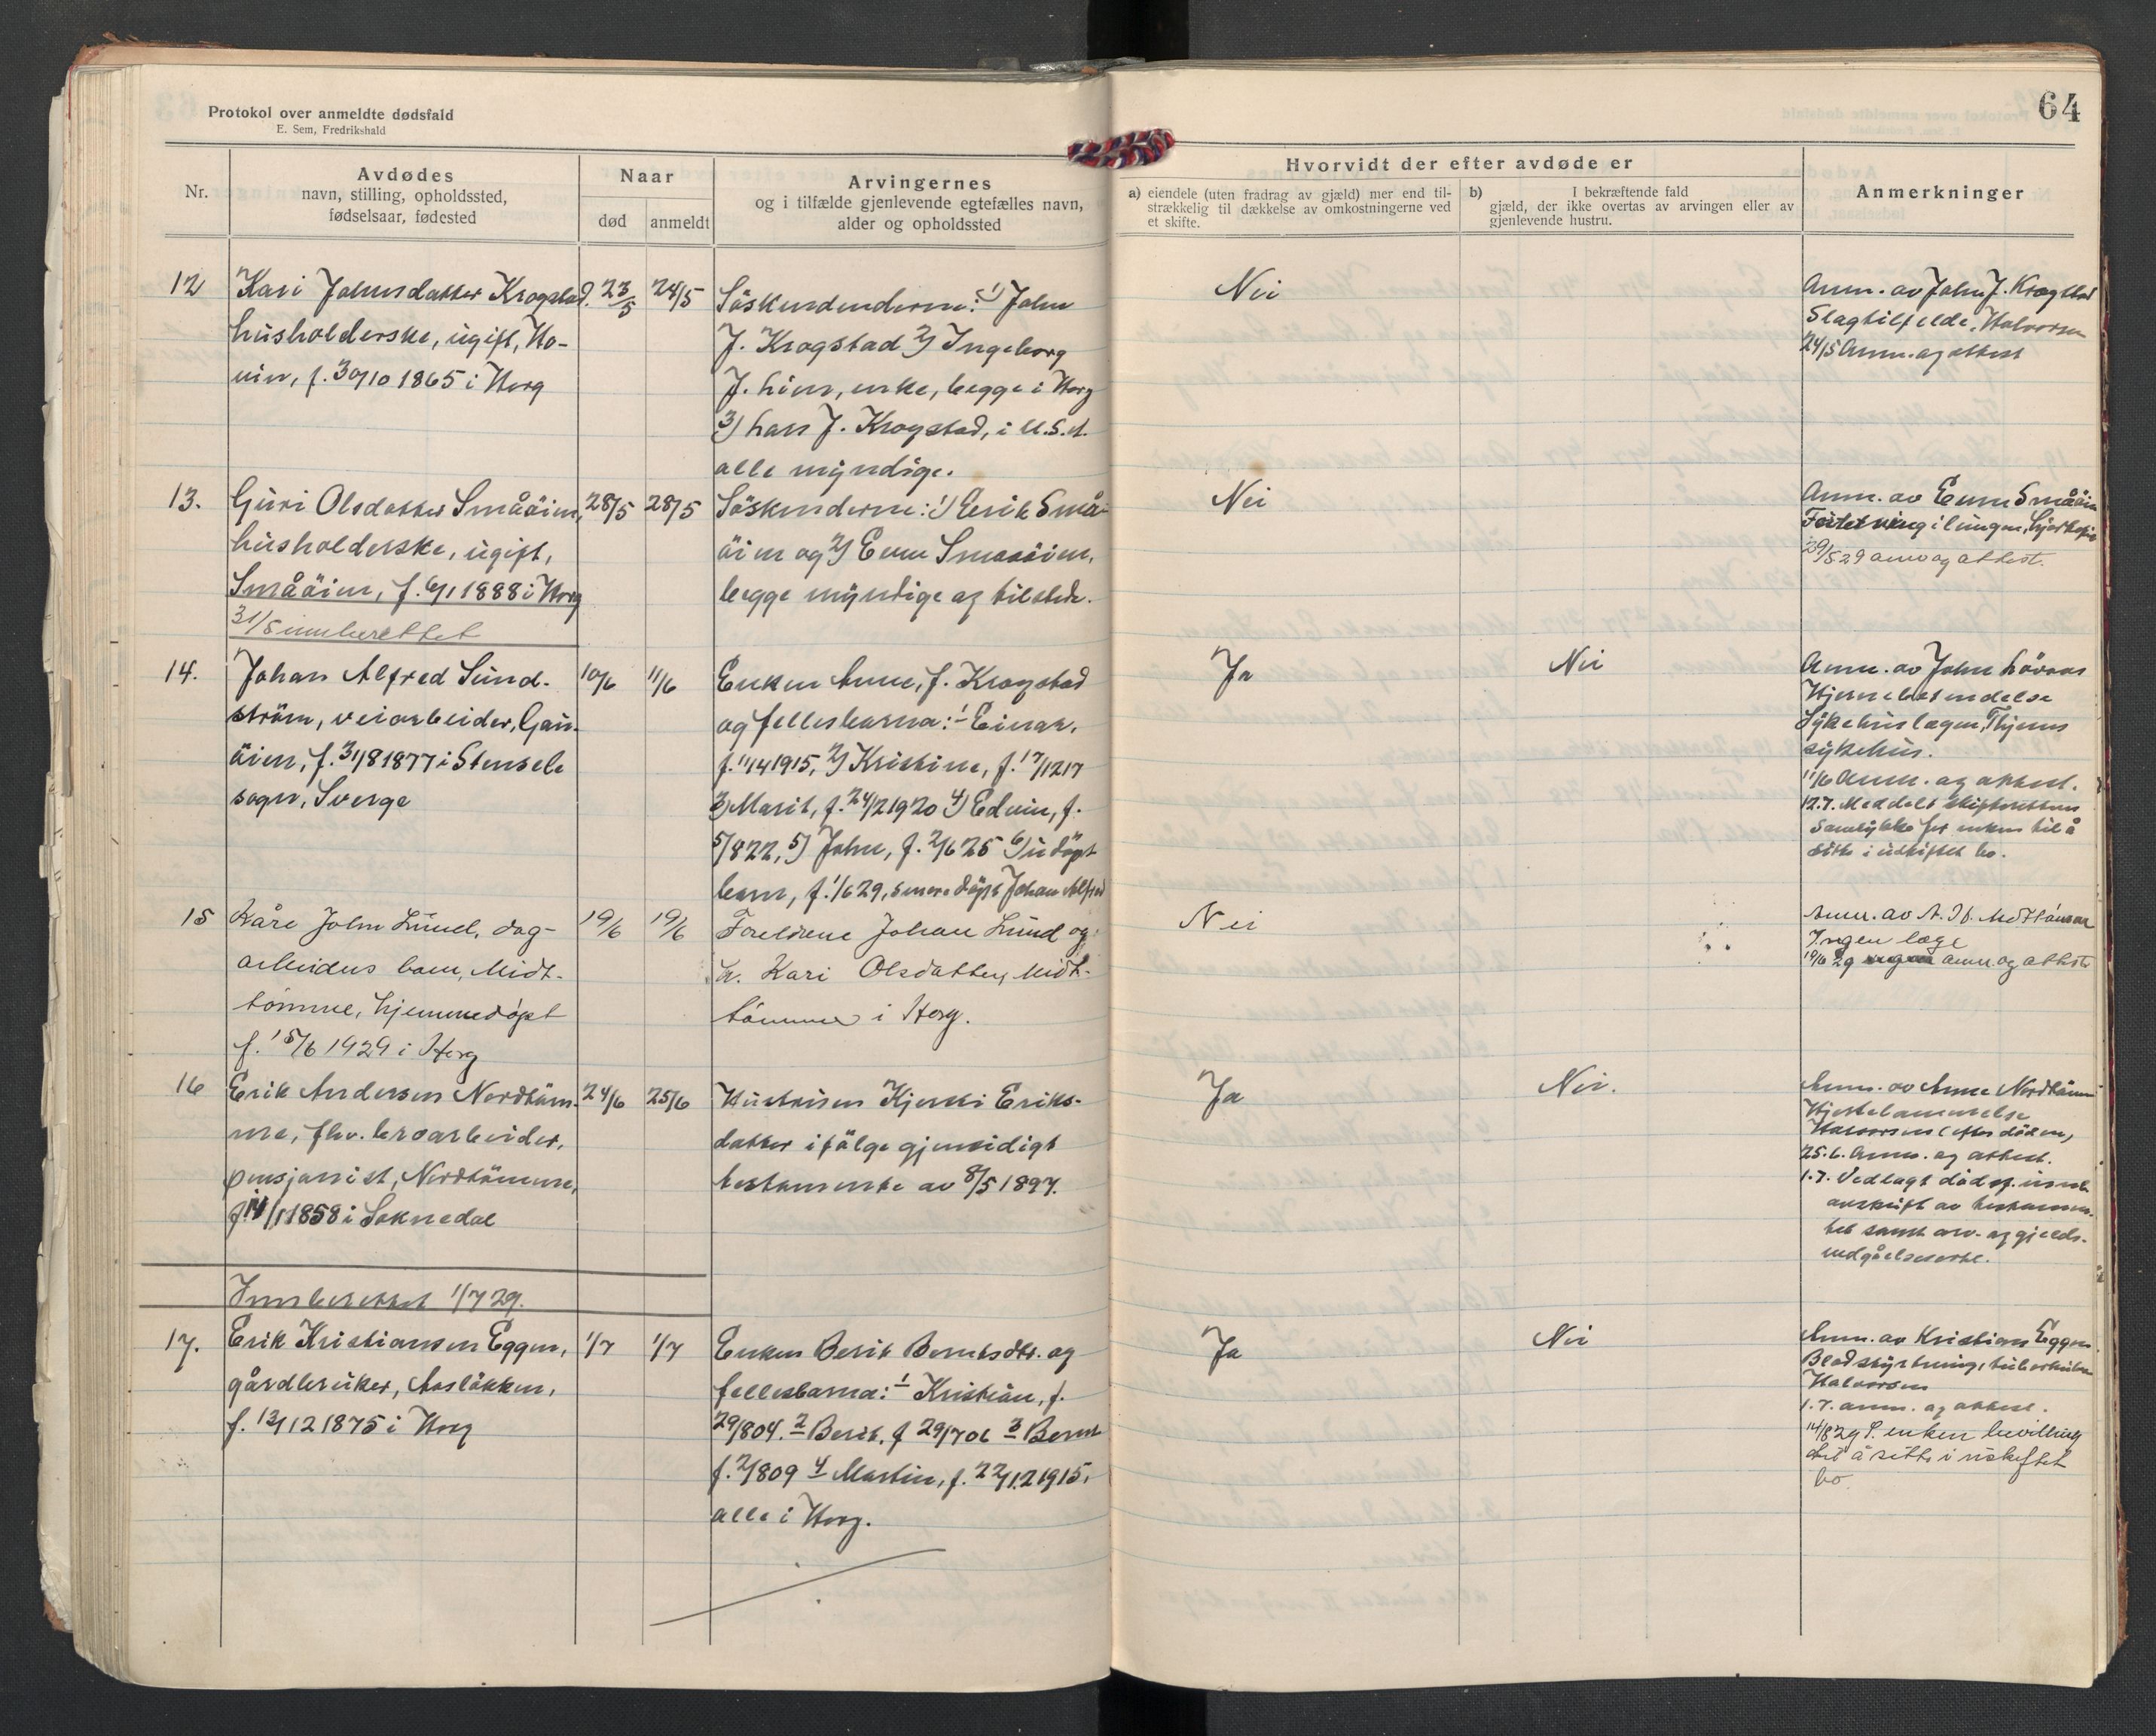 Protokol over anmeldte dødsfald
E. Sem, Fredrikshald
64
Nr.
Avdødes
navn, stilling, opholdssted,
fødselsaar, fødested
Naar
død
anmeldt
Arvingernes
og i tilfælde gjenlevende egtefælles navn,
alder og opholdssted
Hvorvidt der efter avdøde er
a) eiendele (uten fradrag av gjæld) mer end til-
strækkelig til dækkelse av omkostningerne ved
et skifte.
b) I bekræftende fald
gjæld, der ikke overtas av arvingen eller av
gjenlevende hustru.
Anmerkninger
12
Kari Johnsdatter Krogstad.
husholderske, ugift, Ho-
vin, f. 30/10 1865 i Horg
23/5
24/5
1) John
J. Krogstad 2) Ingeborg
J. Lien, enke, begge i Horg
3) Lars J. Krogstad, i U.S.A.
alle myndige.
Nei
Anm. av John J. Krogstad
Slagtilfelde, Halvorsen
24/5 Anm. og attest
13.
Guri Olsdatter Småöien,
husholderske, ugift,
Småöien, f. 6/1 1888 i Horg
31/5 innberettet
28/5
28/5
Söskenderne: 1) Erik Små-
öien og 2) Even Smaaöien,
begge myndige og tilstede.
Nei
Anm. av Even Småöien
i lungen,
29/5 29 anm og attest.
14.
Johan Alfred Sund-
ström, veiarbeider, Gau-
öien, f. 31/8 1877 i Stensele
sogn, Sverge
10/6
11/6
Enken Anne, f. Krogstad
og fellesbarna: 1 Einar,
f. 11/4 1915, 2) Kristine, f. 17/12 17
3) Marit, f. 24/2 1920 4) Edvin, f.
5/8 22, 5) John, f. 2/6 25 6) udöpt
barn, f. 1/6 29, senere döpt Johan Alfred
Ja
Nei
Anm. av John Lövaas
Hjernebetendelse
Sykehuslægen,
sykehus.
11/6 Anm. og attest.
12.7. Meddelt skifterettens
samtykke for enken til å
sitte i uskiftet bo.
15
Kåre John Lund, dag-
arbeiders barn, Midt-
tömme, hjemmedöpt
f. 15/6 1929 i Horg
19/6
19/6
Foreldrene Johan Lund og
h. Kari Olsdatter, Midt-
tömme i Horg.
Nei
Ingen læge
19/6 29 anm. og attest
16
Erik Andersen Nordtöm-
me, fhv. broarbeider,
pensjonist, Nordtömme,
f. 11/1 1858 i Soknedal
24/6
25/6
Hustruen Kjersti Eriks-
datter ifölge gjensidigt
testamente av 8/5 1897.
Ja
Nei.
Anm. av Anne Nordtömme
Hjertelammelse
Halvorsen (efter döden)
25.6. Anm. og attest.
1.7. Vedlagt dödsf.
avskrift av testamen-
tet samt arv- og gjelds-
vedgåelseserkl.
Innberettet 1/7 29.
17.
Erik Kristiansen Eggen,
gårdbruker, Aaslökken,
f. 13/12 1875 i Horg
1/7
1/7
Enken Berit Berntsdtr. og
fellesbarna: 1 Kristian, f.
29/8 04. 2 Berit, f 29/7 06 3 Bernt
f. 2/8 09 4 Martin, f. 22/12 1915,
alle i Horg.
Ja
Nei
Anm. av Kristian Eggen
Blodstyrtning, tuberkulose
Halvorsen
1.7. anm. og attest.
14/8 29 enken bevilling
til å sitte i uskiftet
bo.